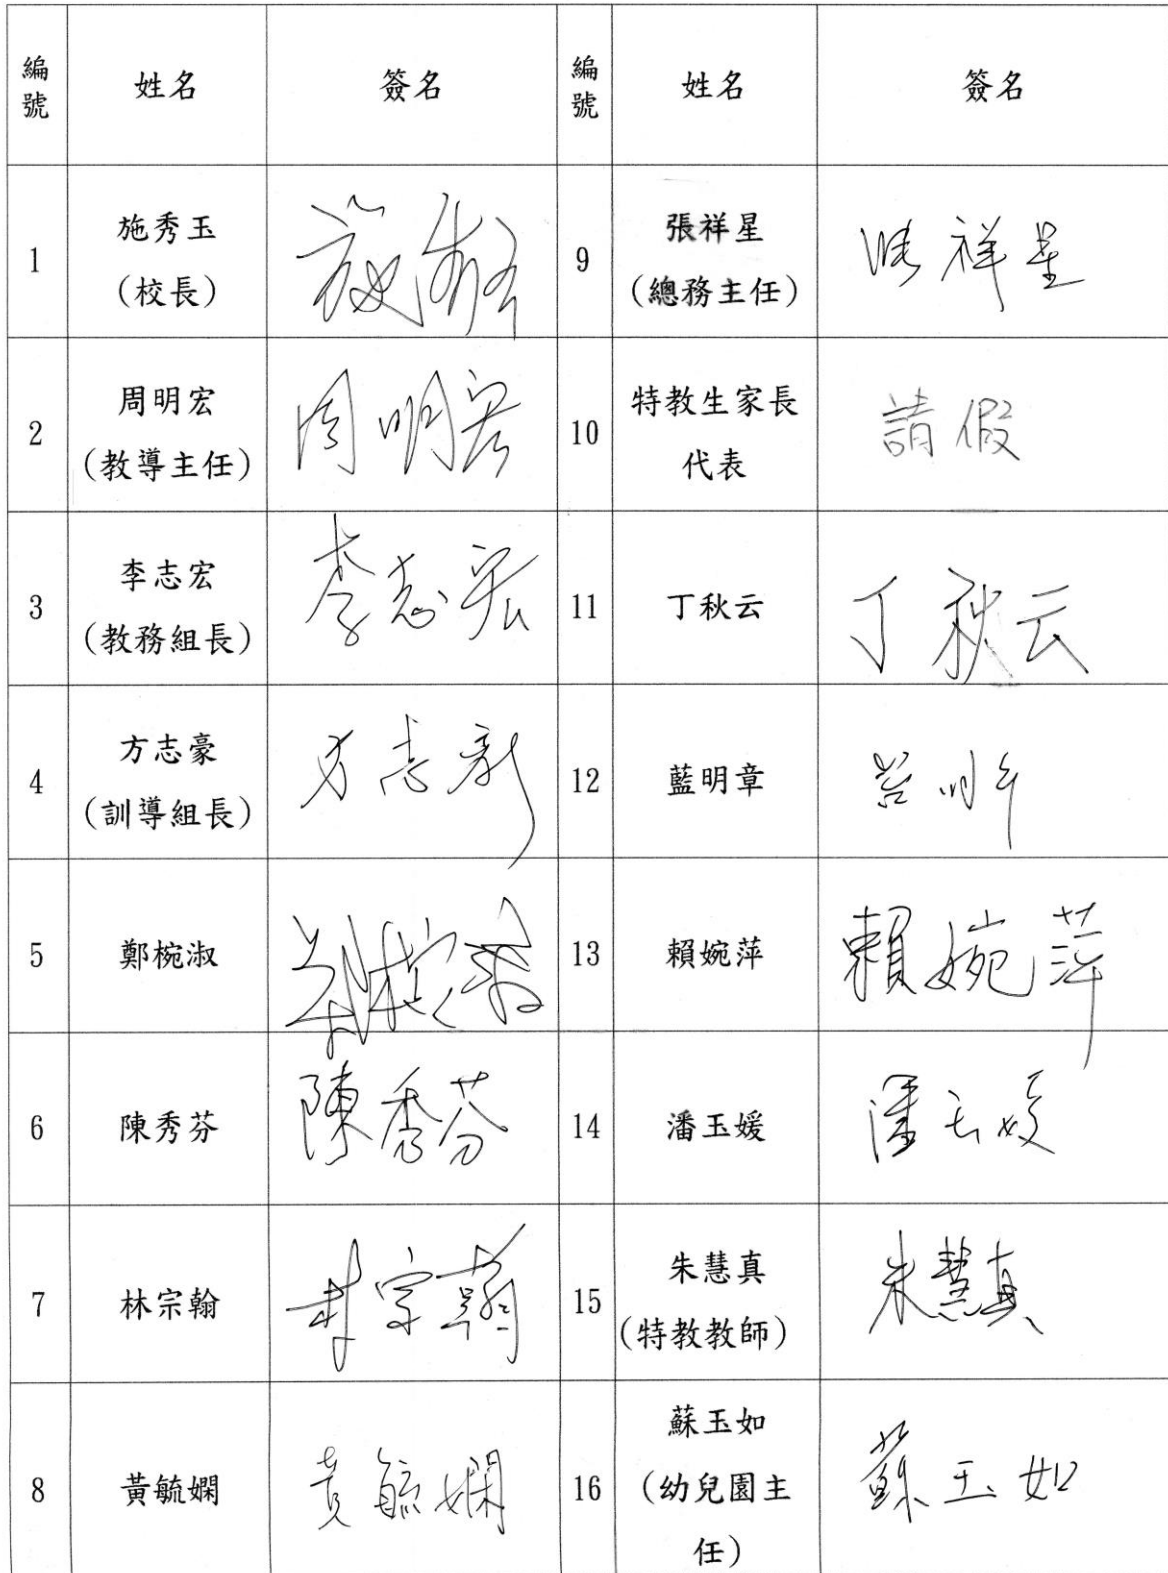 編號 姓名 簽名 編號 姓名 簽名
1 施秀玉 (校長) 施秀玉 9 張祥星 (總務主任) 張祥星
2 周明宏 (教導主任) 周明宏 10 特教生家長代表 請假
3 李志宏 (教務組長) 李志宏 11 丁秋云 丁秋云
4 方志豪 (訓導組長) 方志豪 12 藍明章 藍明章
5 鄭椀淑 鄭椀淑 13 賴婉萍 賴婉萍
6 陳秀芬 陳秀芬 14 潘玉媛 潘玉媛
7 林宗翰 林宗翰 15 朱慧真 (特教教師) 朱慧真
8 黃毓嫻 黃毓嫻 16 蘇玉如 (幼兒園主任) 蘇玉如